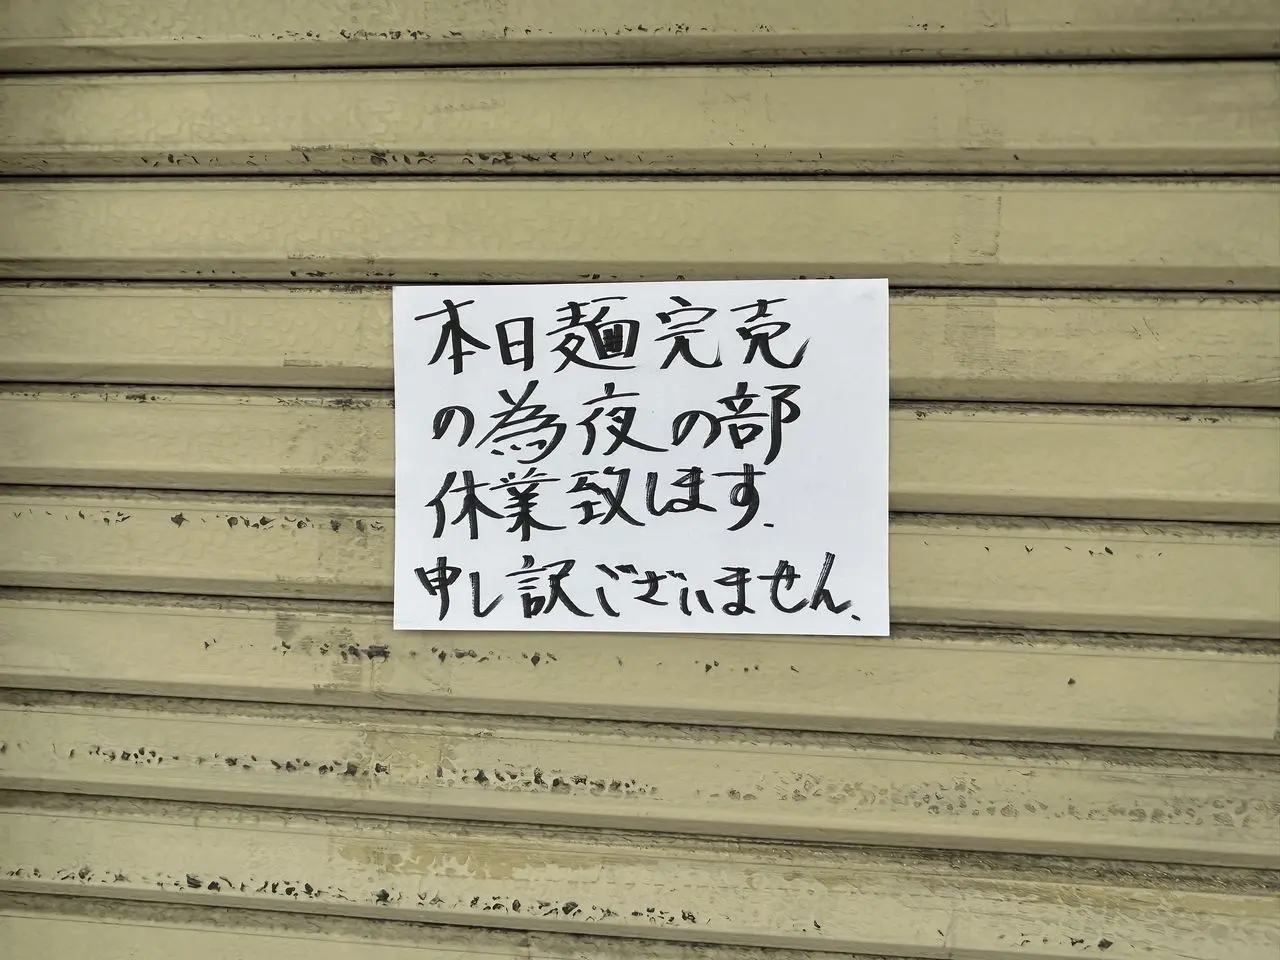 本日麺完売
の為夜の部
休業致します.
申し訳ございません、